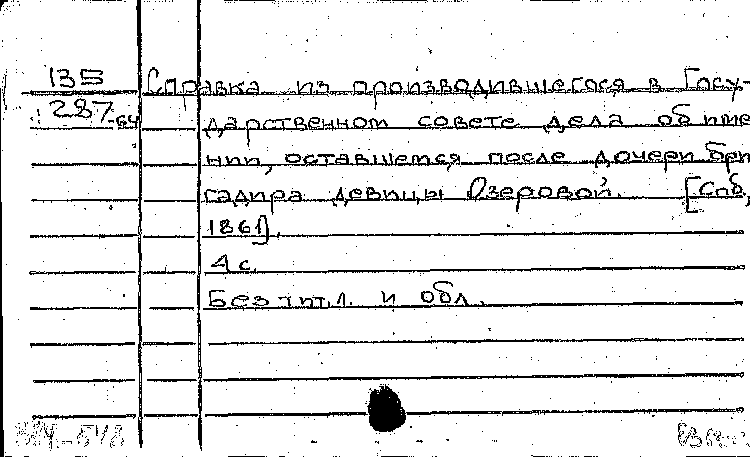 135 Справка из производившегося в Госу-
287-64 дарственном совете дела об име
нии, оставшемся после дочери бри
гадира девицы Озеровой. [Спб,
1861].
4 с.
Без тит.л. и обл.